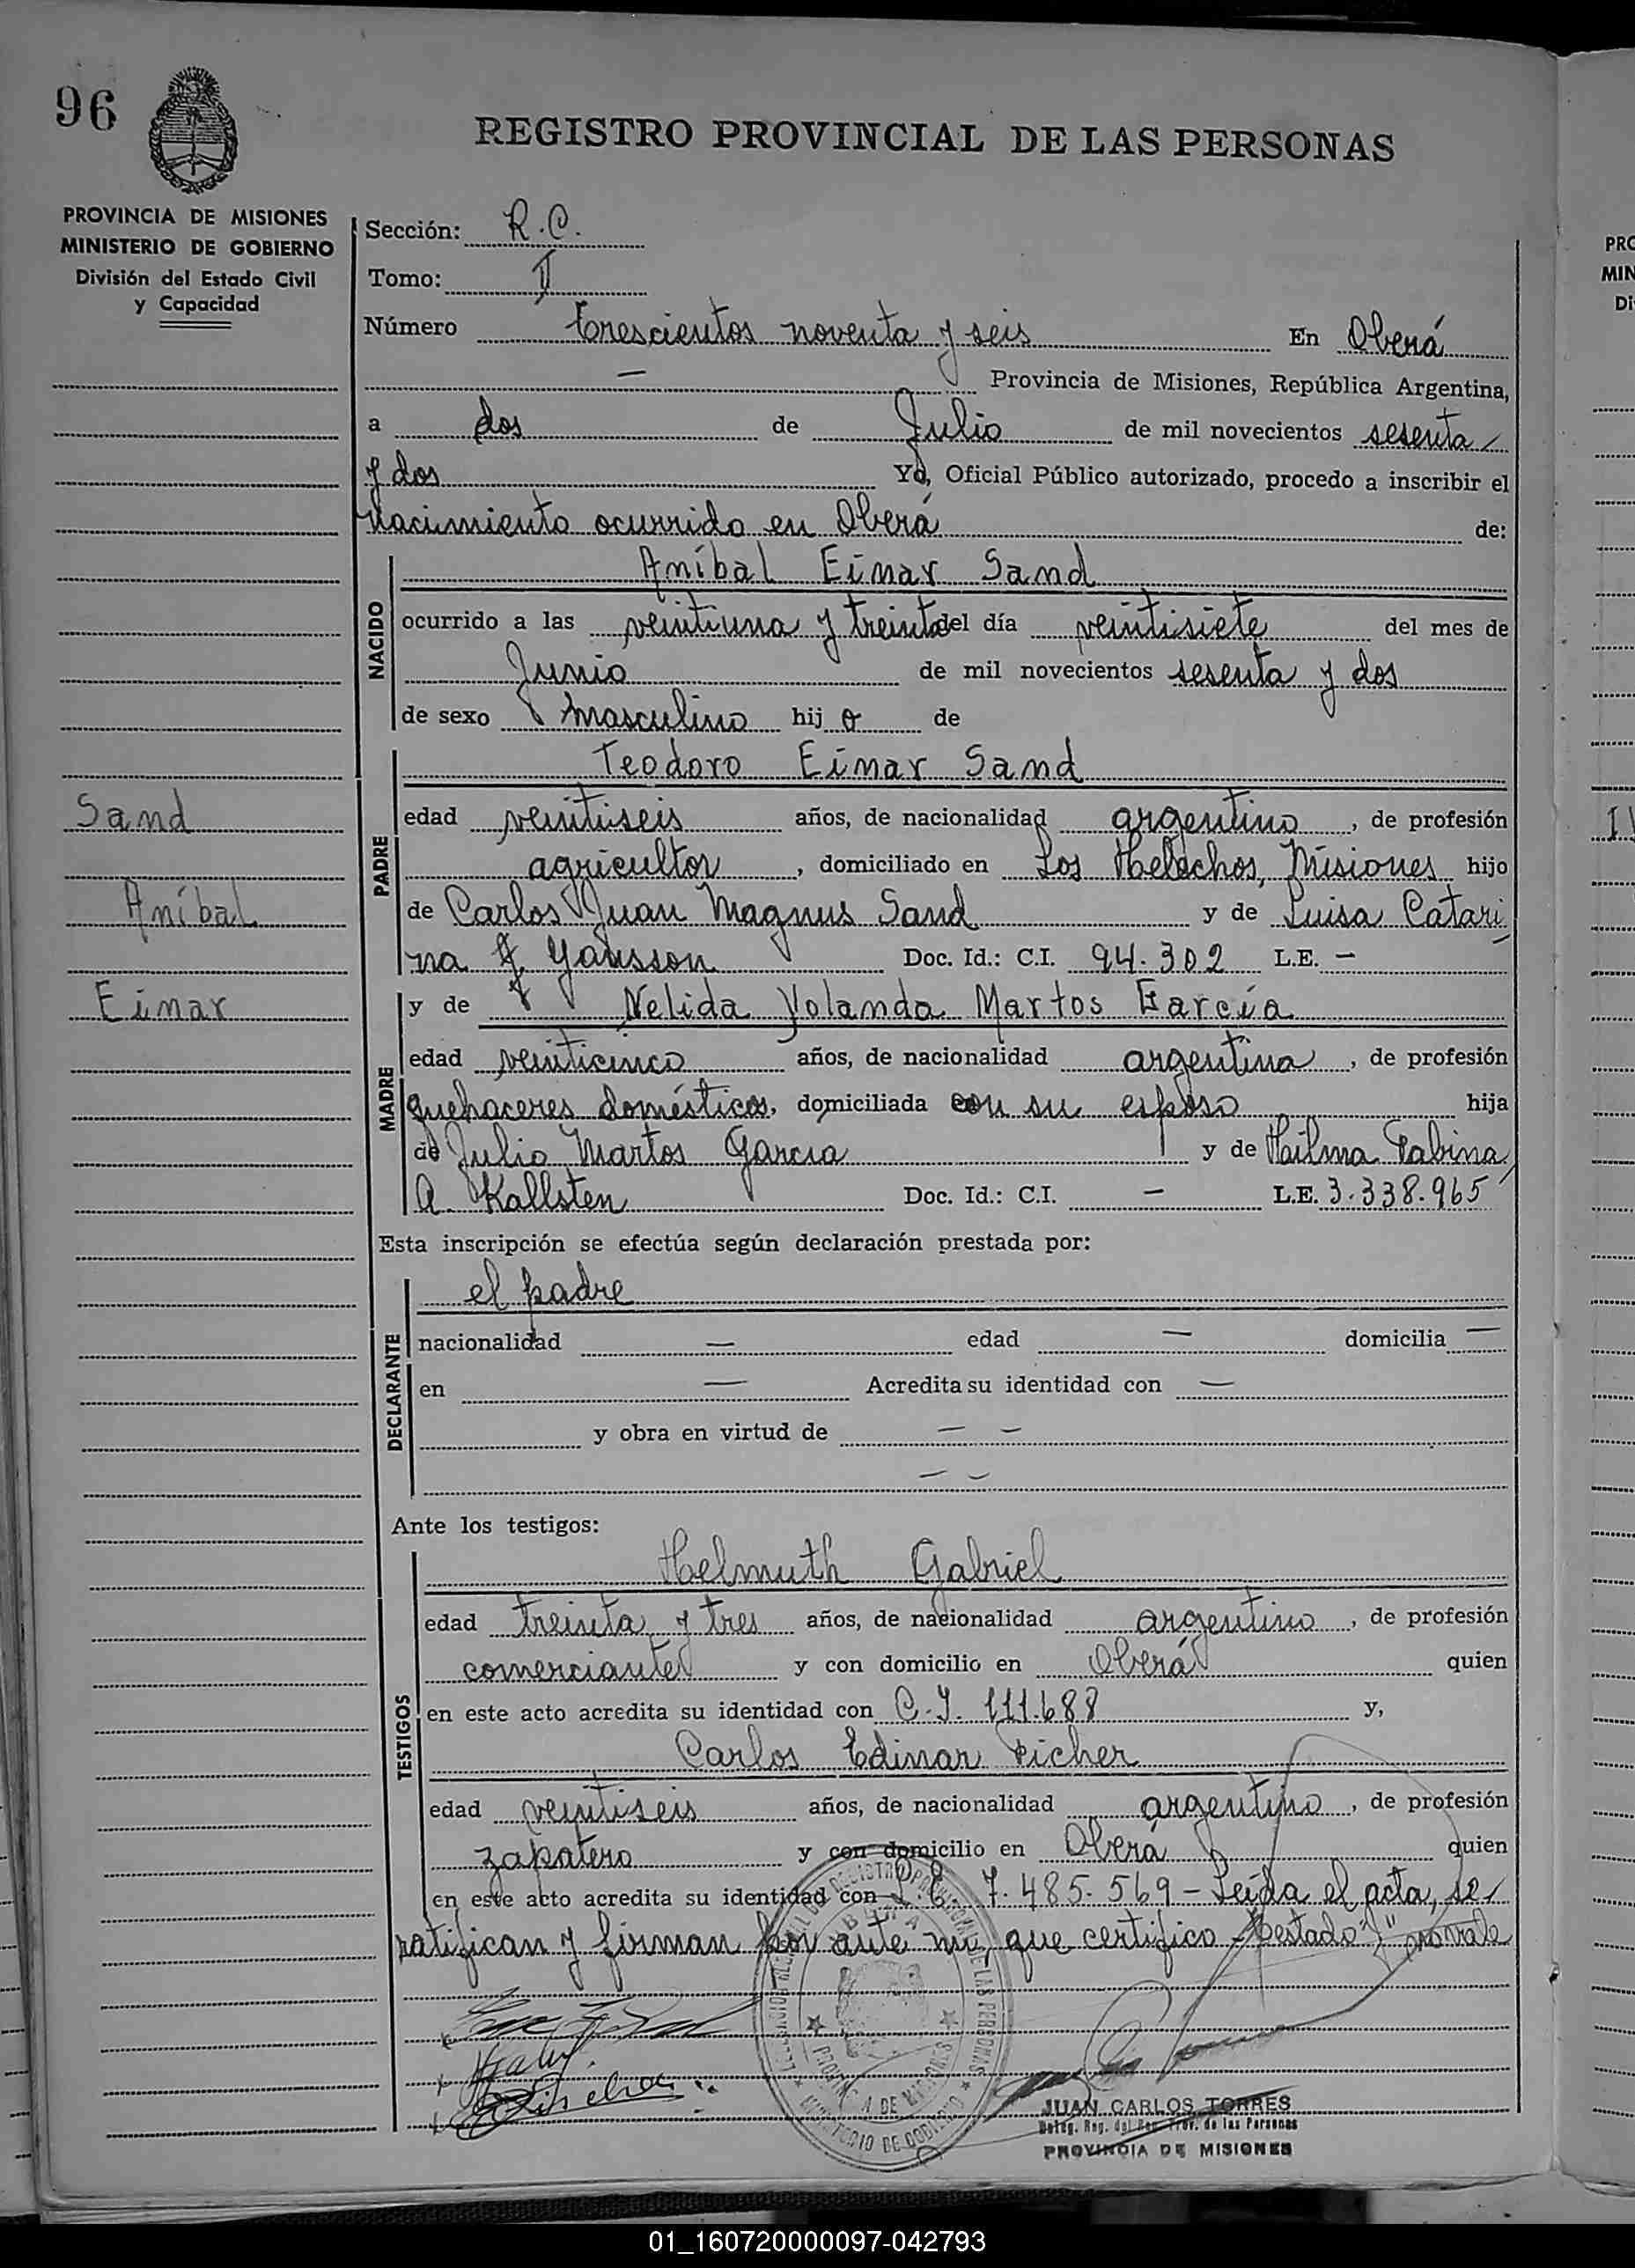 96
REGISTRO PROVINCIAL DE LAS PERSONAS
PROVINCIA DE MISIONES
MINISTERIO DE GOBIERNO
División del Estado Civil
y Capacidad
Sección: R.C.
Tomo: II
Número trescientos noventa y seis En Oberá
— Provincia de Misiones, República Argentina,
a dos de Julio de mil novecientos sesenta
y dos Yo, Oficial Público autorizado, procedo a inscribir el
nacimiento ocurrido en Oberá de:
NACIDO
Aníbal Eimar Sand
ocurrido a las veintiuna y treinta del día veintisiete del mes de
Junio de mil novecientos sesenta y dos
de sexo masculino hijo de
PADRE
Teodoro Eimar Sand
Sand
edad veintiseis años, de nacionalidad argentino, de profesión
agricultor, domiciliado en Los Helechos, Misiones hijo
Aníbal
de Carlos Juan Magnus Sand y de Luisa Catari
na Yansson Doc. Id.: C.I. 94.302 L.E. —
Eimar
MADRE
y de Nelida Yolanda Martos García
edad veinticinco años, de nacionalidad argentina, de profesión
quehaceres domésticos, domiciliada con su esposo hija
de Julio Martos Garcia y de Hilma Sabina
A. Kallsten Doc. Id.: C.I. — L.E. 3.338.965
Esta inscripción se efectúa según declaración prestada por:
DECLARANTE
el padre
nacionalidad — edad — domicilia —
en — Acredita su identidad con —
y obra en virtud de — —
— —
Ante los testigos:
TESTIGOS
Helmuth Gabriel
edad treinta y tres años, de nacionalidad argentino, de profesión
comerciante y con domicilio en Oberá quien
en este acto acredita su identidad con C.I. 111.688 y,
Carlos Edinar Picher
edad veintiseis años, de nacionalidad argentino, de profesión
zapatero y con domicilio en Oberá quien
en este acto acredita su identidad con 7.485.569 - Leída el acta, se
ratifican y firman por ante mí, que certifico - Testado no vale
PROVINCIA DE MISIONES
MINISTERIO DE GOBIERNO
JUAN CARLOS TORRES
Deleg. Reg. del Reg. Prov. de las Personas
PROVINCIA DE MISIONES
01_160720000097-042793